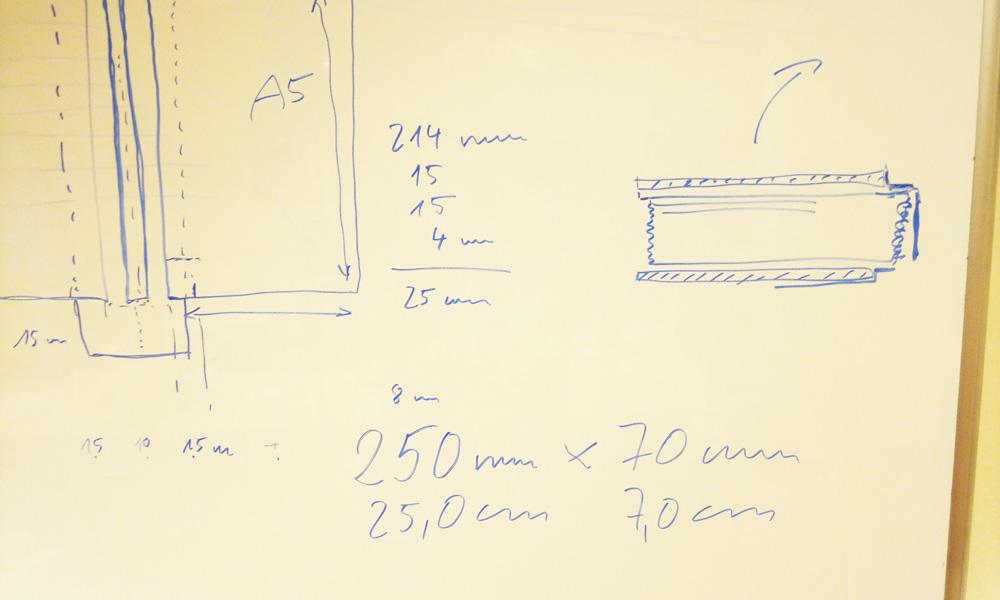 A5
214 mm
15
15
4 mm
25 mm
15 m
8 m
15 10 15 m +
250 mm × 70 mm
25,0 cm 7,0 cm